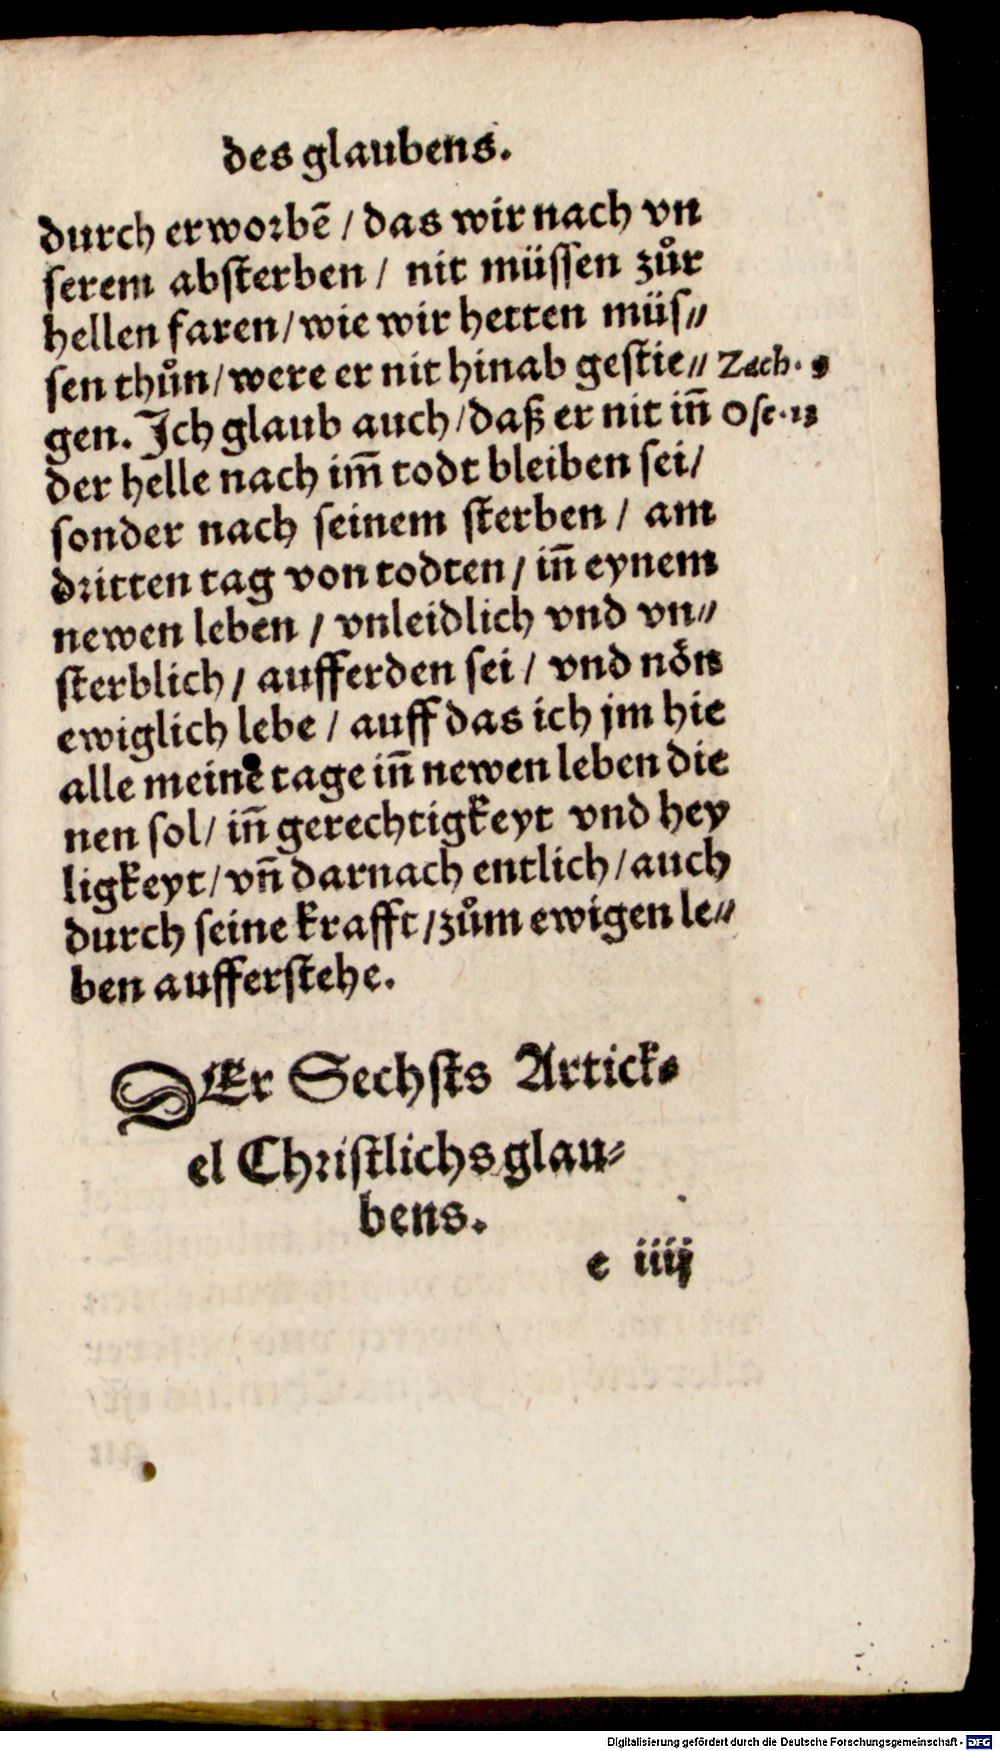 des glaubens.
durch erworbē / das wir nach vn
serem absterben / nit müssen zůr
hellen faren / wie wir hetten müs⸗
sen thůn / were er nit hinab gestie⸗ Zach. 9
gen. Ich glaub auch / daß er nit inn̄ Ose. 13
der helle nach im̄ todt bleiben sei /
sonder nach seinem sterben / am
dritten tag von todten / inn̄ eynem
newen leben / vnleidlich vnd vn⸗
sterblich / aufferden sei / vnd nön
ewiglich lebe / auff das ich jm hie
alle meine tage inn̄ newen leben die
nen sol / inn̄ gerechtigkeyt vnd hey
ligkeyt / vn̄ darnach entlich / auch
durch seine krafft / zům ewigen le⸗
ben aufferstehe.
DEr Sechsts Artick⸗
el Christlichs glau⸗
bens.
e iiij
Digitalisierung gefördert durch die Deutsche Forschungsgemeinschaft - DFG